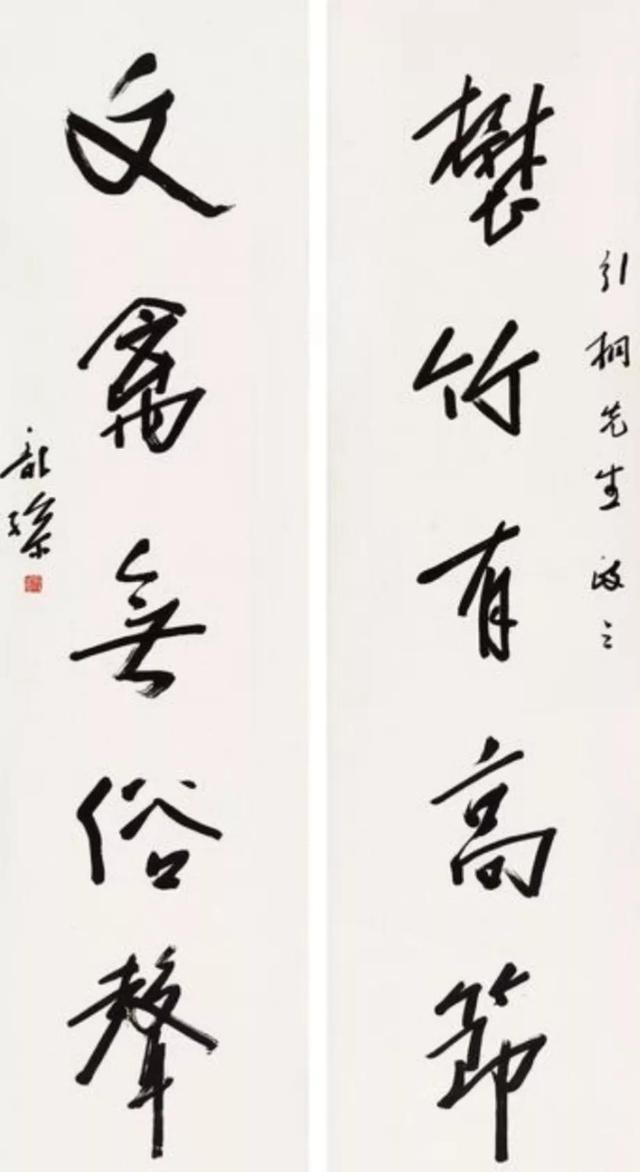 引桐先生政之
竹有高節
文禽無俗聲